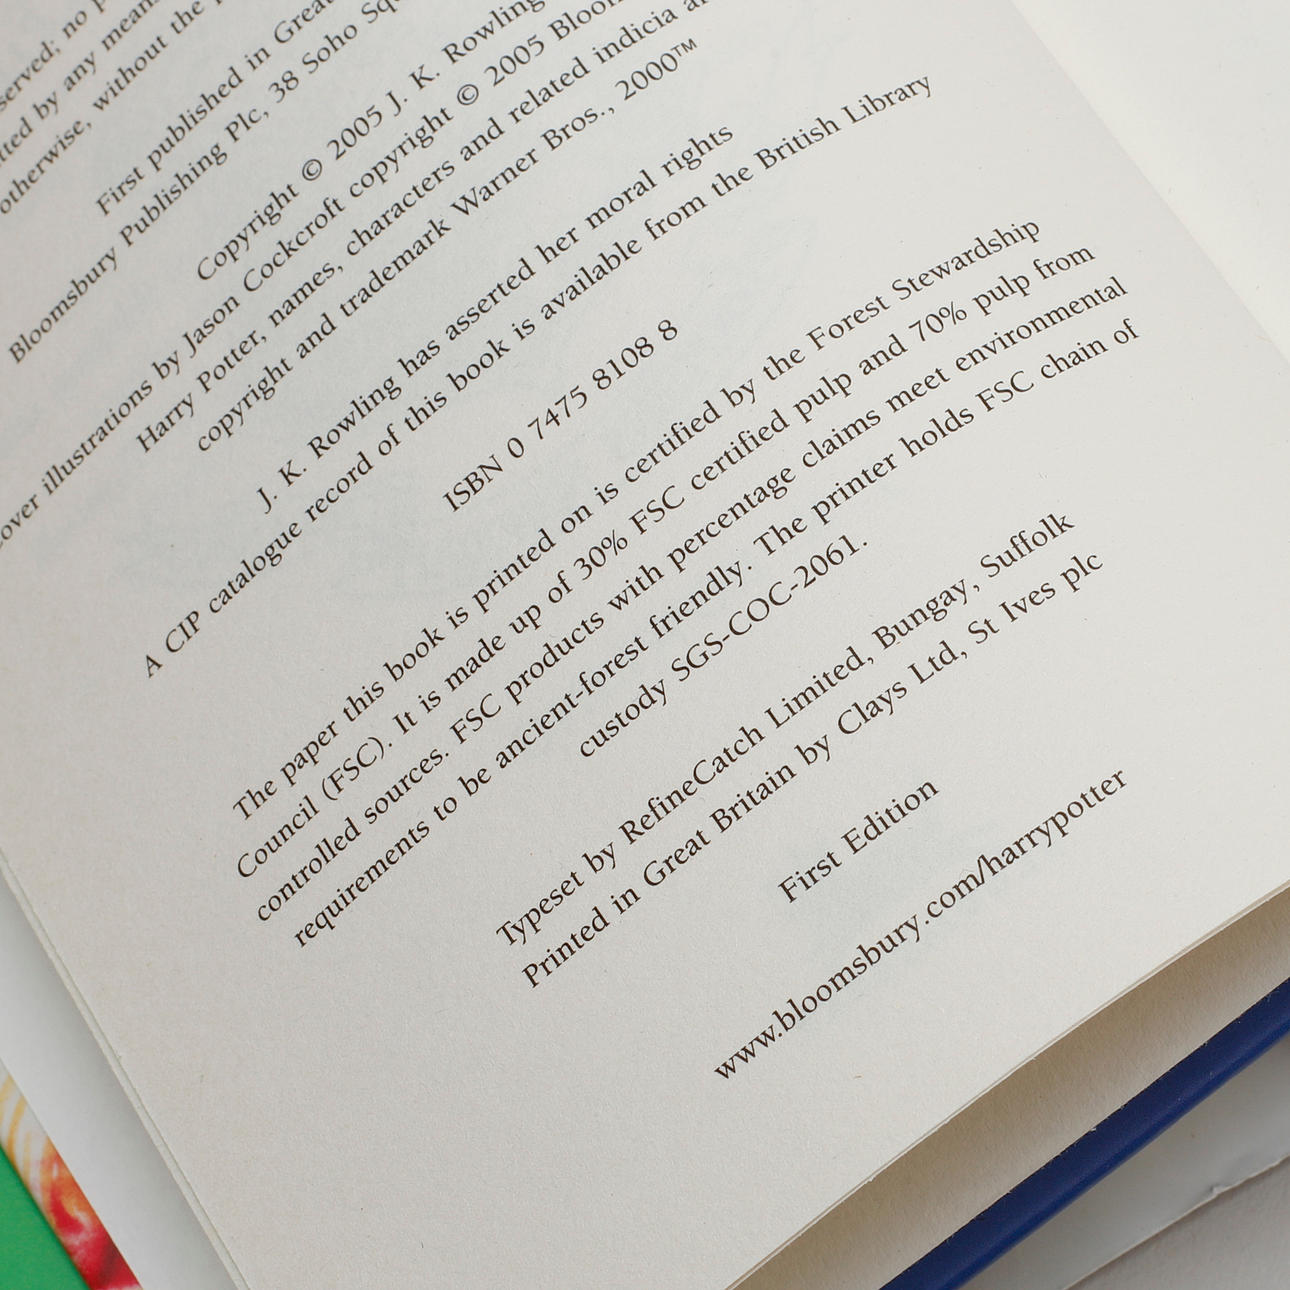 served; no
tted by any means
otherwise, without the
First published in Great
Bloomsbury Publishing Plc, 38 Soho Squ
Copyright © 2005 J. K. Rowling
over illustrations by Jason Cockcroft copyright © 2005 Bloom
Harry Potter, names, characters and related indicia a
copyright and trademark Warner Bros., 2000™
J. K. Rowling has asserted her moral rights
A CIP catalogue record of this book is available from the British Library
ISBN 0 7475 8108 8
The paper this book is printed on is certified by the Forest Stewardship
Council (FSC). It is made up of 30% FSC certified pulp and 70% pulp from
controlled sources. FSC products with percentage claims meet environmental
requirements to be ancient-forest friendly. The printer holds FSC chain of
custody SGS-COC-2061.
Typeset by RefineCatch Limited, Bungay, Suffolk
Printed in Great Britain by Clays Ltd, St Ives plc
First Edition
www.bloomsbury.com/harrypotter